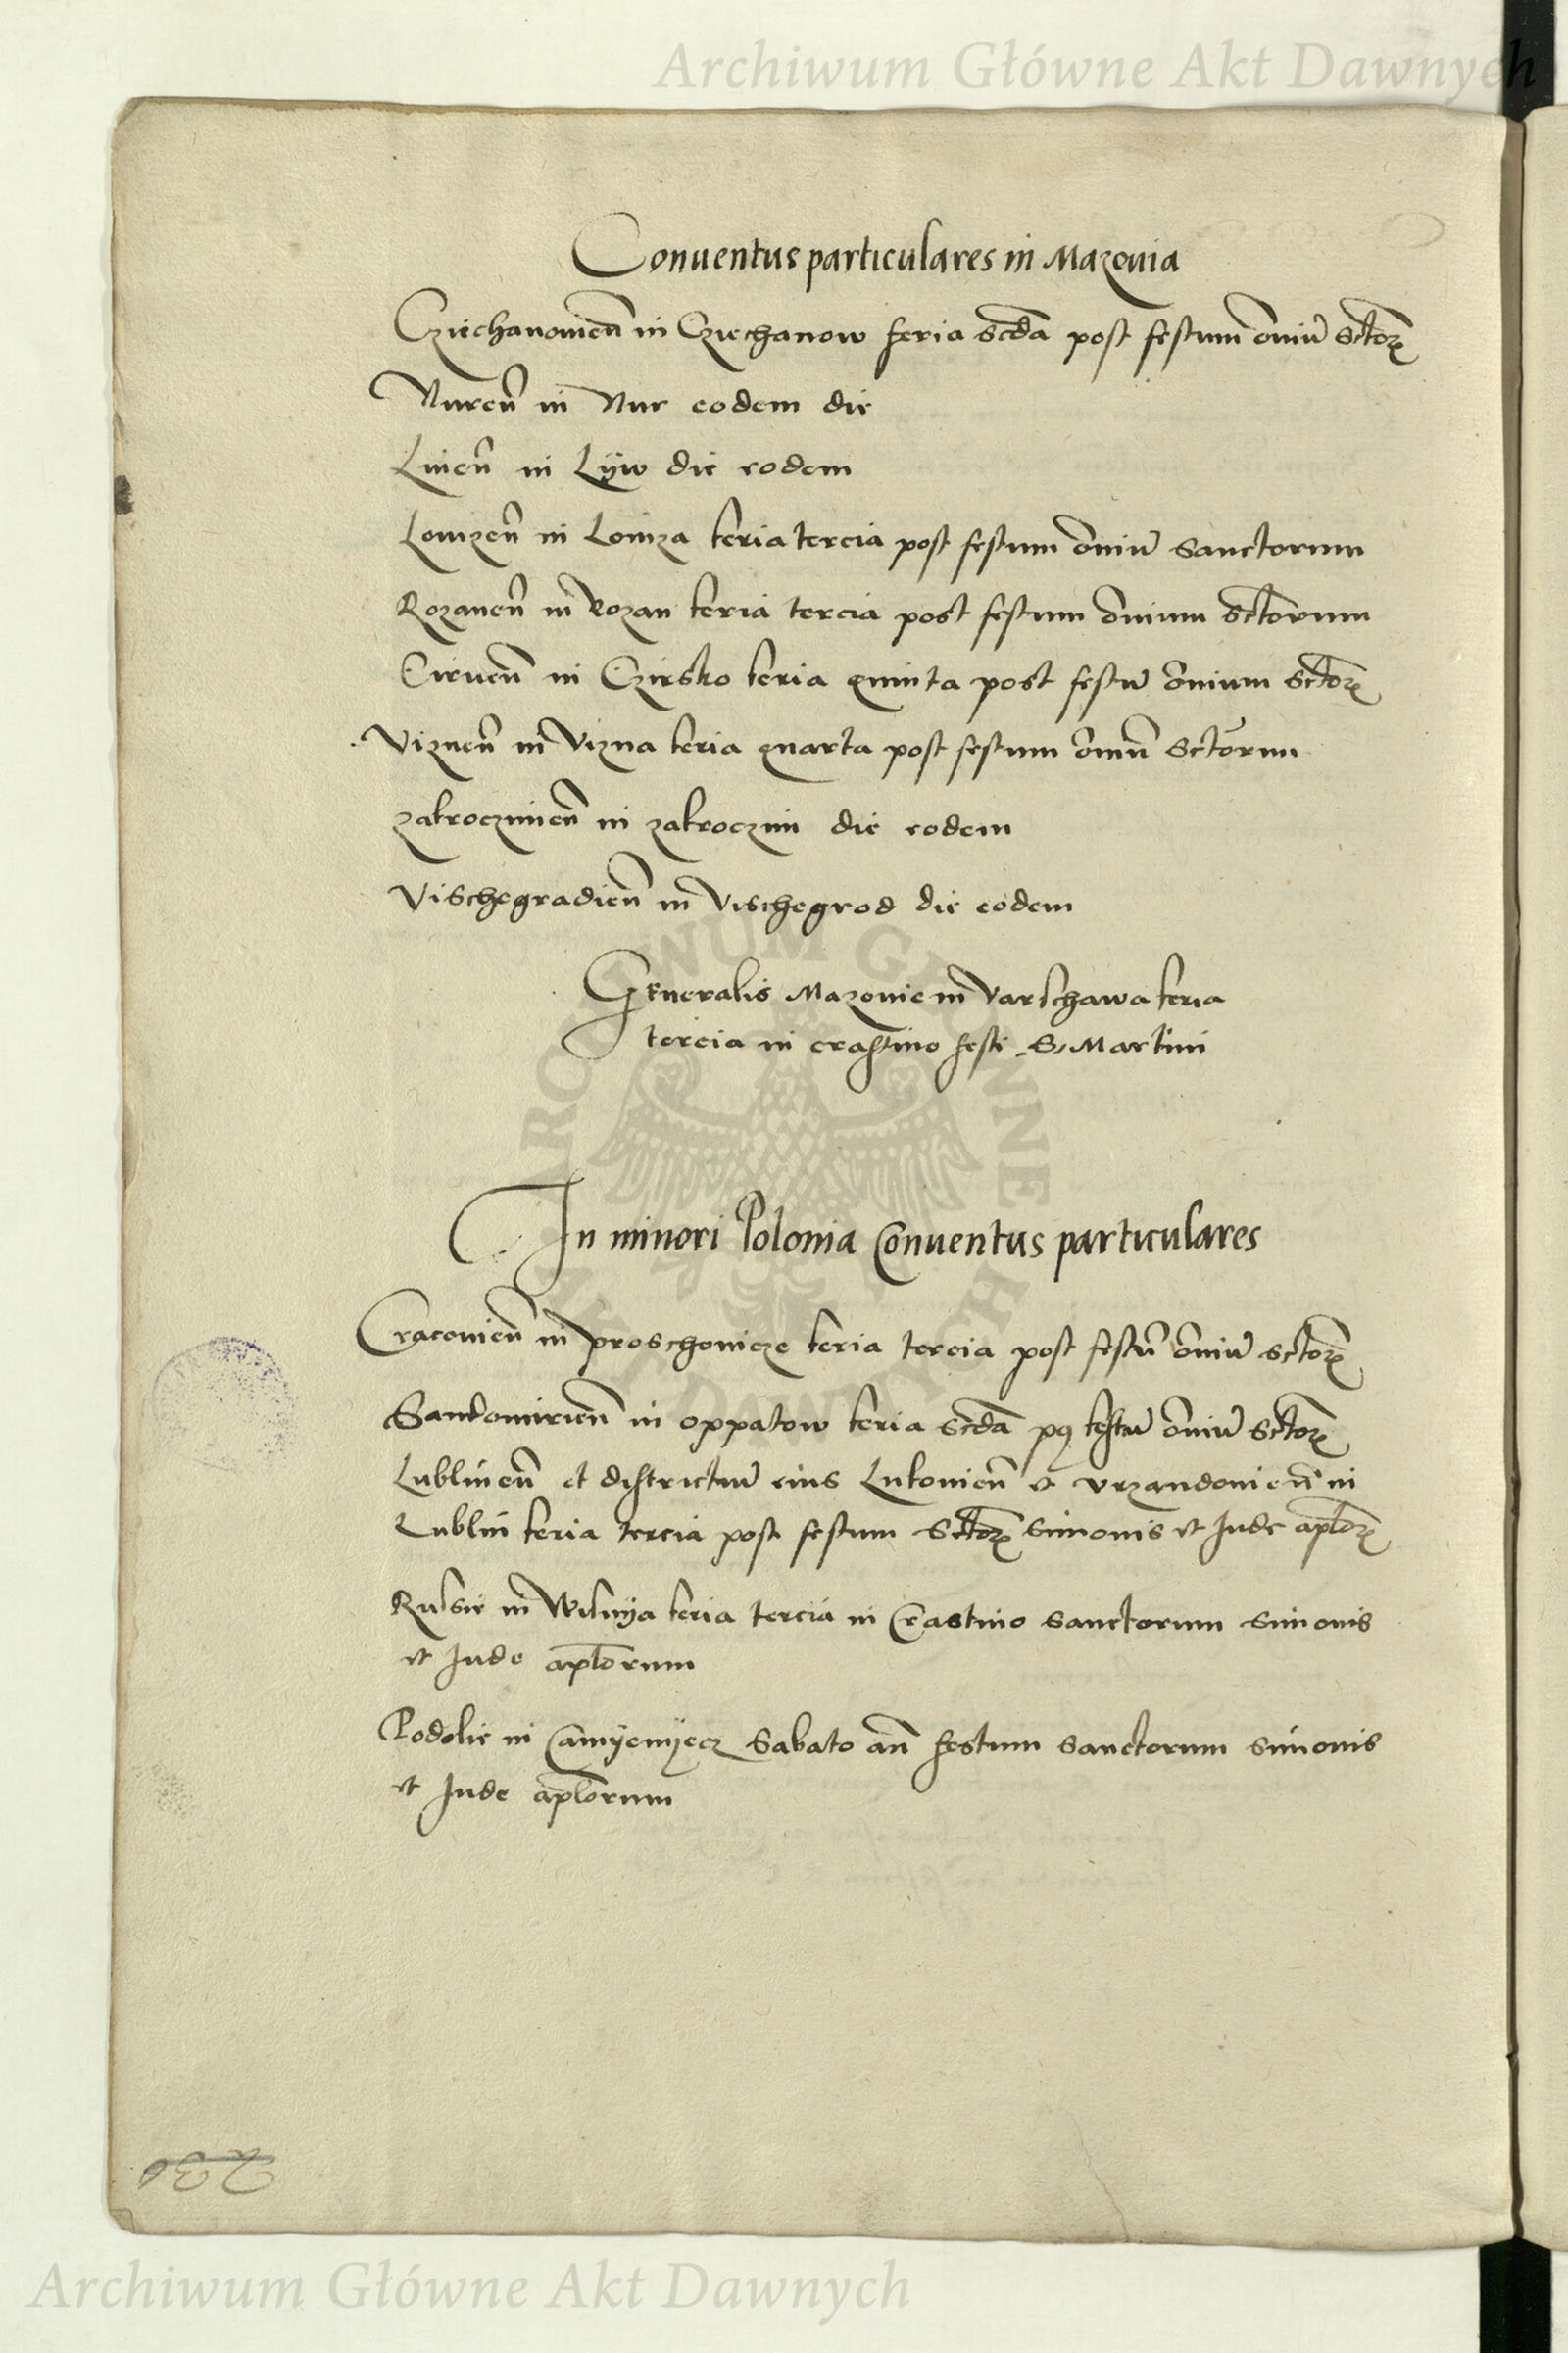 Archiwum Główne Akt Dawnych
Conuentus particulares in Mazouia
Cziechanouien̄ in Cziechanow feria scd̄a post festum om̄iū sctor̄ꝝ
Nuren̄ in Nur eodem die
Liuen̄ in Lÿw die eodem
Lomzen̄ in Lomza feria tercia post festum om̄iū sanctorum
Rozanen̄ in Rozan feria tercia post festum om̄ium sctōrum
Cirnen̄ in Czirsko feria quinta post festū om̄ium sctor̄ꝝ
Viznen̄ in Vizna feria quarta post festum om̄iū sctōrum
zakroczimien̄ in zakroczim die eodem
Vischegradien̄ in Vischegrod die eodem
Generalis Mazouie in Varschawa feria
tercia in crastino festi S. Martini
In minori Polonia Conuentus particulares
Cracouien̄ in proschouicze feria tercia post festū om̄iū sctor̄ꝝ
Sandomirien̄ in oppatow feria scd̄a pꝰ festū om̄iū sctor̄ꝝ
Lublinen̄ et districtuū eius Lukouien̄ et vrzandouien̄ in
Lublin feria tercia post festum Sctor̄ꝝ simonis et Jude aplōꝝ
Russie in Wisnÿa feria tercia in Crastino sanctorum simonis
et Jude aplōrum
Podolie in Camÿenÿecz Sabato an̄ festum sanctorum simonis
et Jude aplōrum
230
ARCHIWUM GŁÓWNE
AKT DAWNYCH
Archiwum Główne Akt Dawnych